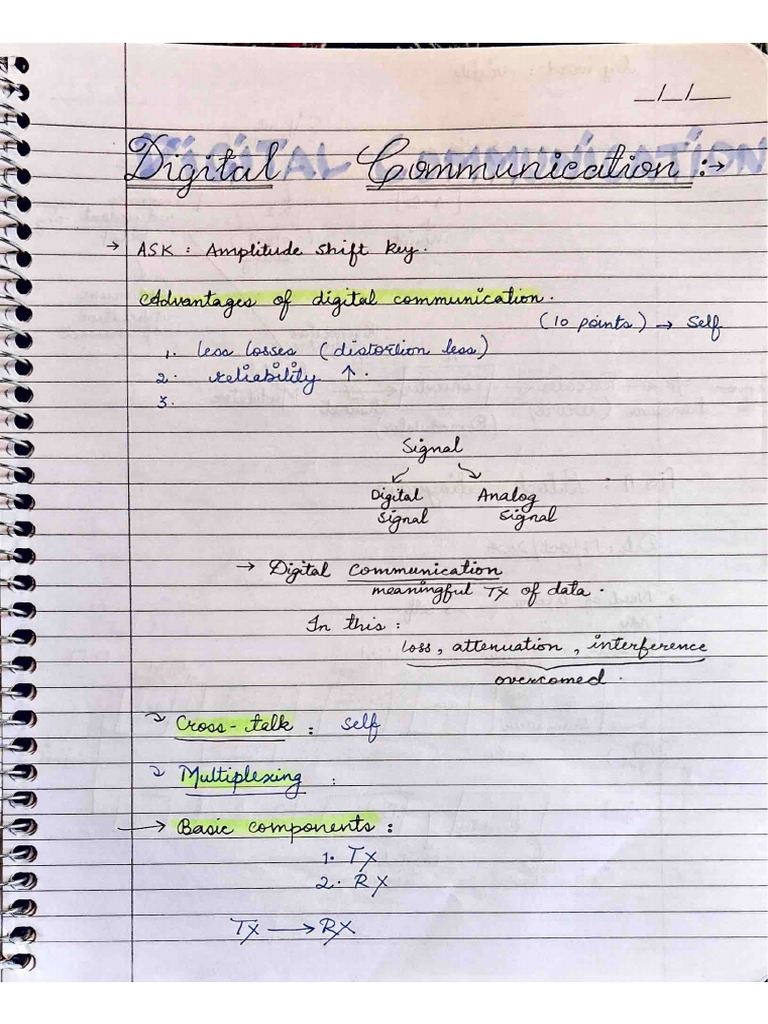 __/__/____
DIGITAL COMMUNICATION
Digital Communication :→
→ ASK : Amplitude shift key.
Advantages of digital communication.
(10 points) → Self
1. less losses (distortion less)
2. reliability ↑.
3.
Signal
Digital Analog
signal signal
→ Digital communication
meaningful TX of data.
In this :
loss, attenuation, interference
overcomed.
Cross-talk : self
Multiplexing :
→ Basic components :
1. TX
2. RX
TX → RX